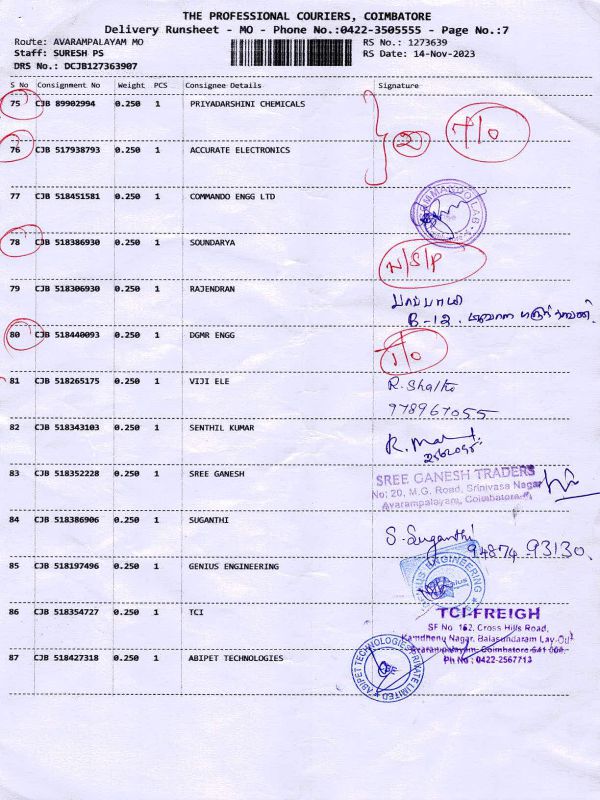 THE PROFESSIONAL COURIERS, COIMBATORE
Delivery Runsheet - MO - Phone No.:0422-3505555 - Page No.:7
Route: AVARAMPALAYAM MO RS No.: 1273639
Staff: SURESH PS RS Date: 14-Nov-2023
DRS No.: DCJB127363907
S No Consignment No Weight PCS Consignee Details Signature
75 CJB 89902994 0.250 1 PRIYADARSHINI CHEMICALS
2 T/O
76 CJB 517938793 0.250 1 ACCURATE ELECTRONICS
77 CJB 518451581 0.250 1 COMMANDO ENGG LTD
78 CJB 518386930 0.250 1 SOUNDARYA
N/S/P
79 CJB 518306930 0.250 1 RAJENDRAN
B-12
80 CJB 518440093 0.250 1 DGMR ENGG
81 CJB 518265175 0.250 1 VIJI ELE R.
978967055
82 CJB 518343103 0.250 1 SENTHIL KUMAR
83 CJB 518352228 0.250 1 SREE GANESH SREE GANESH TRADERS
No: 20, M.G. Road, Srinivasa Nagar
Avarampalayam, Coimbatore
84 CJB 518386906 0.250 1 SUGANTHI S. Suganthi
94874 93130
85 CJB 518197496 0.250 1 GENIUS ENGINEERING ENGINEERING
86 CJB 518354727 0.250 1 TCI TCI FREIGH
SF No: 162, Cross Hills Road,
Kamdhenu Nagar, Balasundaram Lay-Out
Avarampalayam, Coimbatore-641 006.
Ph No : 0422-2567713
87 CJB 518427318 0.250 1 ABIPET TECHNOLOGIES
ABIPET TECHNOLOGIES PRIVATE LIMITED